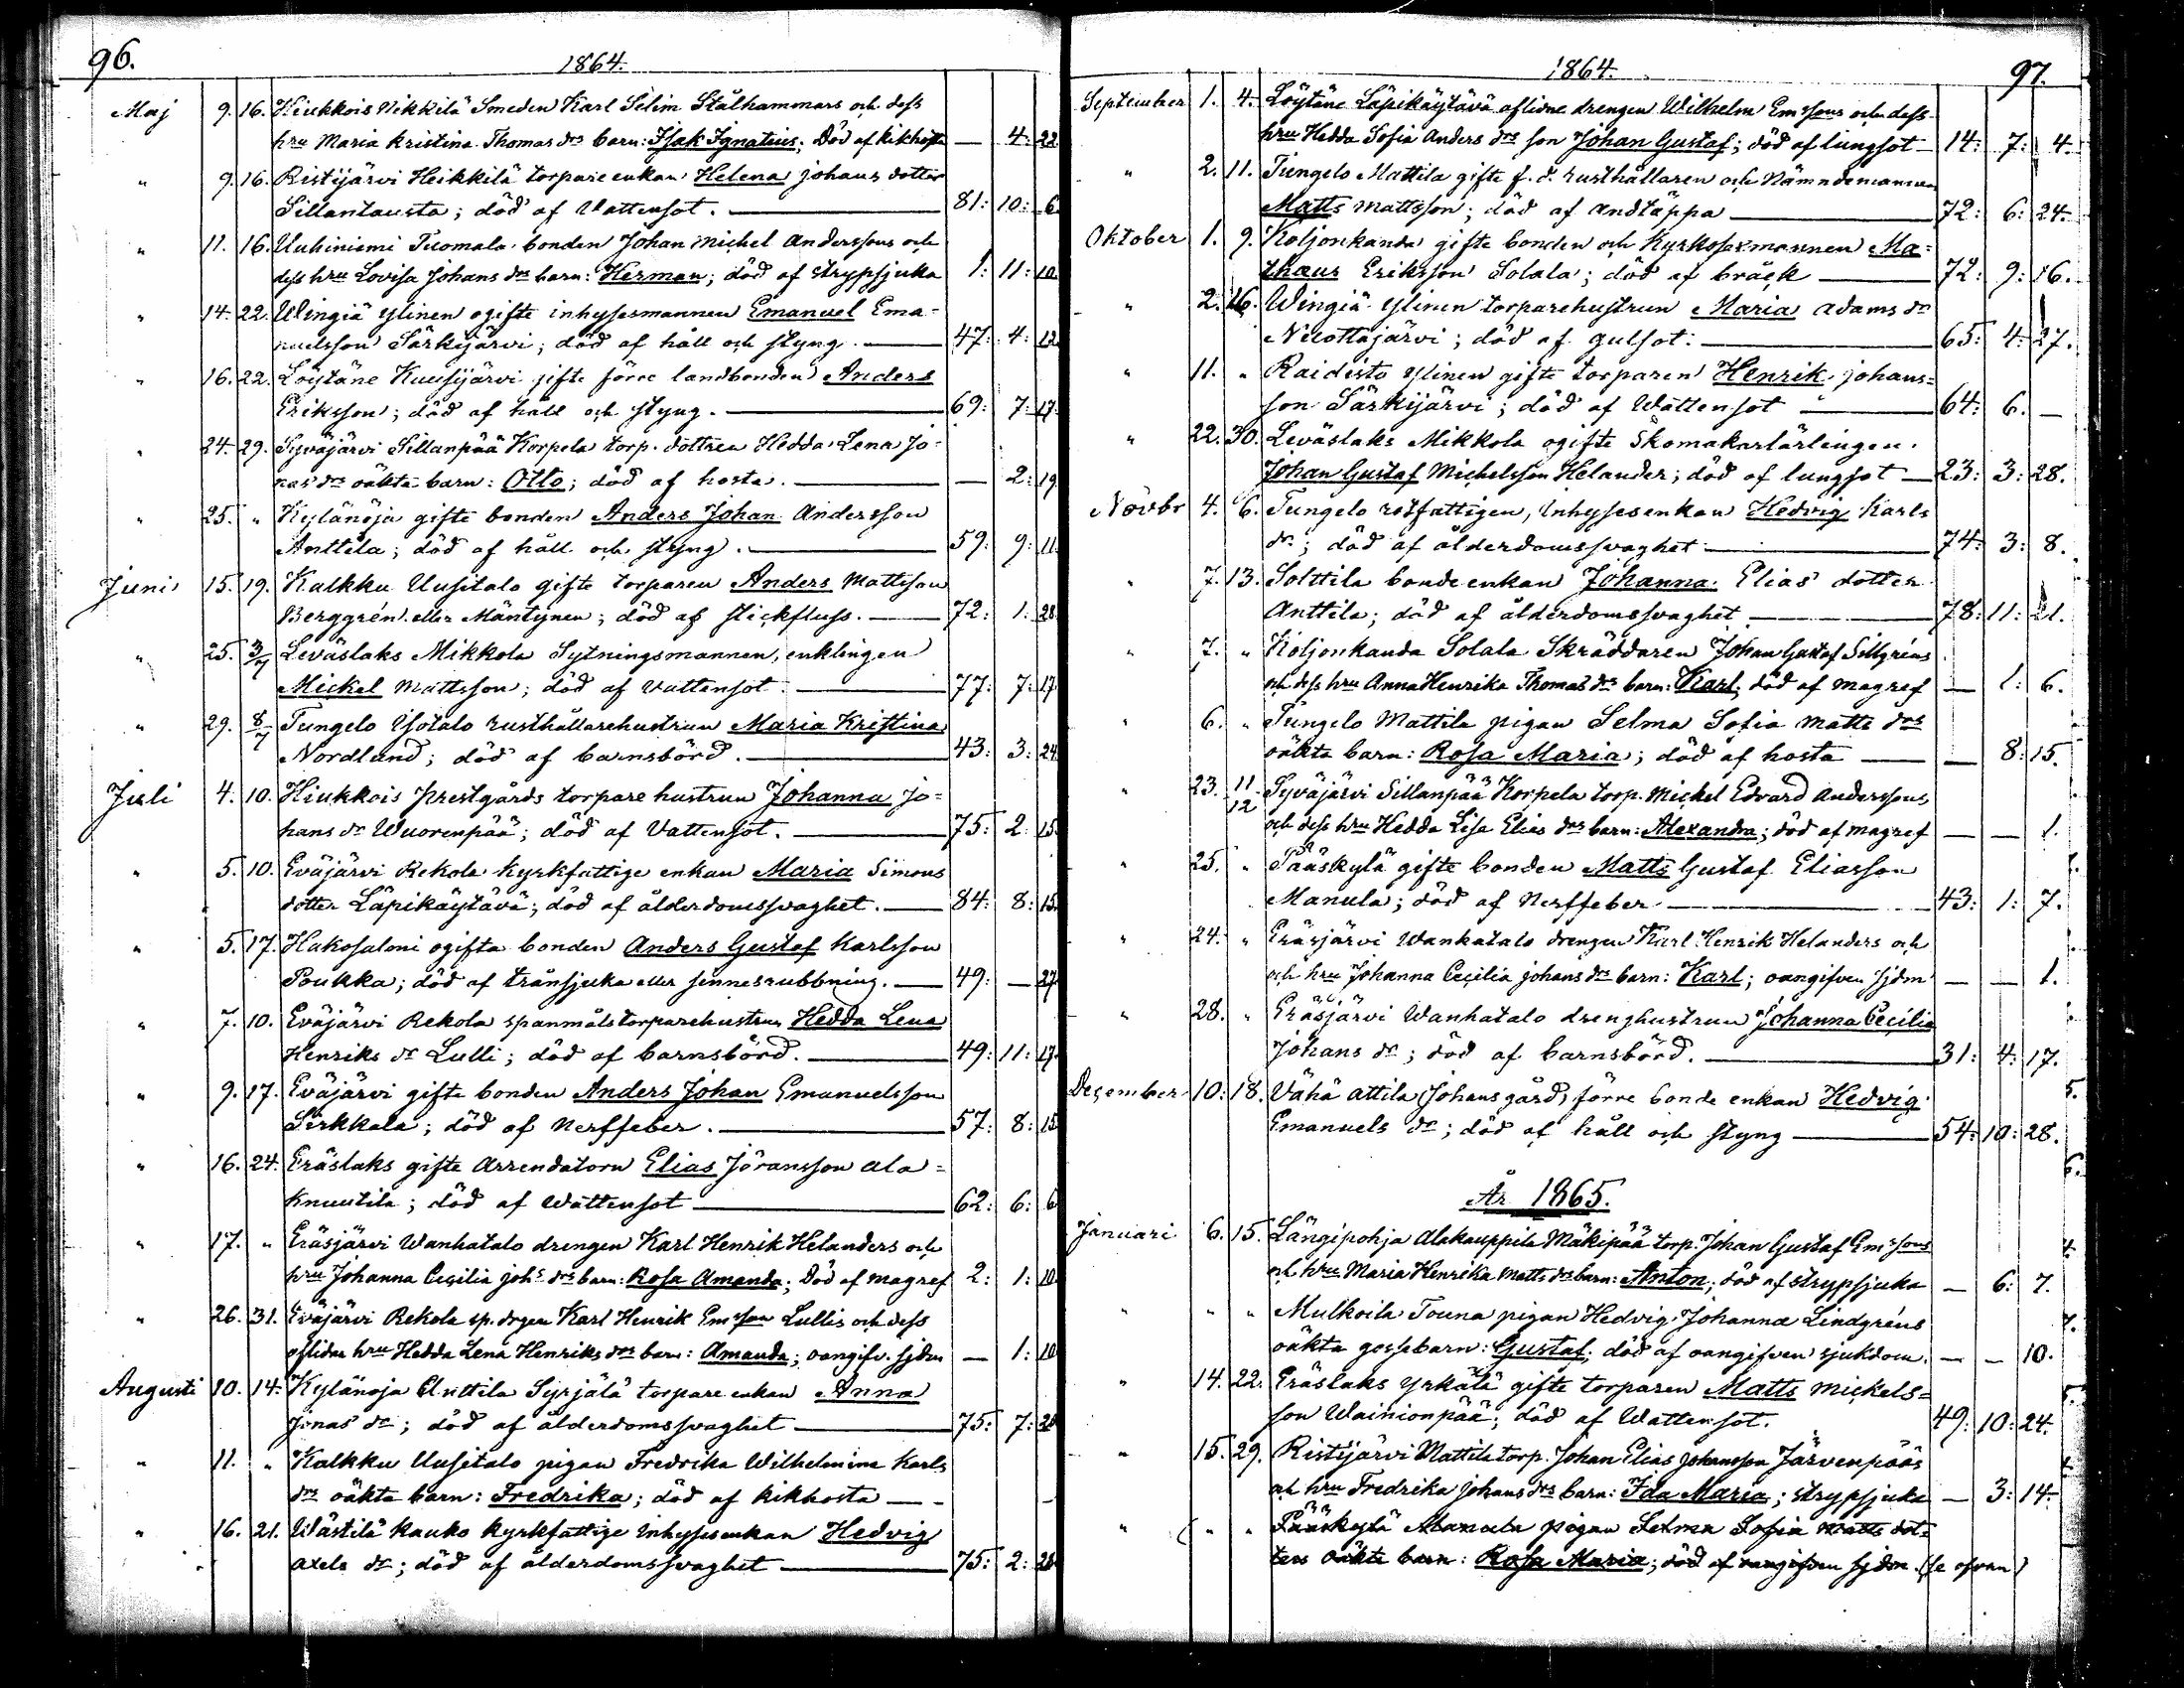 96.
1864.
Maj 9. 16. Hiukkois Nikkilä Smeden Karl Selim Stålhammars och dess
hru Maria Kristina Thomas drs barn: Isak Ignatius; Död af kikhosta — 4: 22
" 9. 16. Ristijärvi Heikkilä torpare enkan Helena Johans dotter
Sillantausta; död af Vattensot. — 81: 10: 6.
" 11. 16. Uuhiniemi Tuomala bonden Johan Michel Anderssons och
dess hru Lovisa Johans drs barn: Herman; död af strypsjuka 1: 11: 10.
" 14. 22. Wingiä Ylinen ogifte inhysesmannen Emanuel Ema-
nuelsson Särkijärvi; död af håll och styng. — 47: 4: 12.
" 16. 22. Löytäne Kuusijärvi gifte förre landbonden Anders
Eriksson; död af håll och styng. — 69: 7: 17.
" 24. 29. Syväjärvi Sillanpää Korpela torp. dottren Hedda Lena Jo-
nas drs oäkta barn: Otto; död af hosta. — — 2: 19.
" 25. " Kylänoja gifte bonden Anders Johan Andersson
Anttila; död af håll och styng. — 59: 9: 11.
Juni 15. 19. Kalkku Uusitalo gifte torparen Anders Mattsson
Berggrén eller Mäntynen; död af stickfluss. — 72: 1: 28.
" 25. 3/7 Leväslaks Mikkola Sytningsmannen, enklingen
Mickel Mattsson; död af Vattensot. — 77: 7: 17.
" 29. 8/7 Tungelo Isotalo rusthållarehustrun Maria Kristina
Nordlund; död af barnsbörd. — 43: 3: 24.
Juli 4. 10. Hiukkois Prestgårds torpare hustrun Johanna Jo-
hans dr Wuorenpää; död af Vattensot. — 75: 2: 15.
" 5. 10. Eväjärvi Rekola kyrkfattige enkan Maria Simons
dotter Läpikäytävä; död af ålderdomssvaghet. — 84: 8: 15.
" 5. 17. Hakosaloni ogifta bonden Anders Gustaf Karlsson
Poukka; död af trånsjuka eller sinnesrubbning. — 49: — 27.
" 7. 10. Eväjärvi Rekola spanmålstorparehustrun Hedda Lena
Henriks dr Lulli; död af barnsbörd. — 49: 11: 17.
" 9. 17. Eväjärvi gifte bonden Anders Johan Emanuelsson
Sirkkala; död af Nerffeber. — 57: 8: 15.
" 16. 24. Eräslaks gifte Arrendatorn Elias Jöransson Ala-
Knuutila; död af Wattensot — 62: 6: 6.
" 17. " Eräsjärvi Wanhatalo drengen Karl Henrik Helanders och
hru Johanna Cecilia Johs drs barn: Rosa Amanda; Död af magref 2: 1: 10.
" 26. 31. Eväjärvi Rekola sp. drgen Karl Henrik Emsson Lullis och dess
aflidne hru Hedda Lena Henriks drs barn: Amanda; oangifv. sjdm — 1: 10.
Augusti 10. 14. Kylänoja Anttila Syrjälä torpare enkan Anna
Jonas dr; död af ålderdomssvaghet — 75: 7: 28
" 11. " Kalkku Uusitalo pigan Fredrika Wilhelmina Karls
drs oäkta barn: Fredrika; död af kikhosta — —
" 16. 21. Wästilä Kauko kyrkfattige Inhyses enkan Hedvig
Axels dr; död af ålderdomssvaghet — 75: 2: 28
1864.
97.
September 1. 4. Löytäne Läpikäytävä aflidne drengen Wilhelm Emssons och dess
hru Hedda Sofia Anders drs son Johan Gustaf; död af lungsot — 14: 7: 4.
" 2. 11. Tungelo Mattila gifte f.d. rusthållaren och Nämndemannen
Matts Mattsson; död af andtäppa — 72: 6: 24.
Oktober 1. 9. Koljonkanda gifte bonden och Kyrkosexmannen Ma-
thæus Eriksson Solala; död af bråck — 72: 9: 16.
" 2. 16. Wingiä Ylinen torparehustrun Maria Adams dr
Niiottajärvi; död af gulsot. — 65: 4: 27.
" 11. " Raidisto Ylinen gifte torparen Henrik Johans-
son Särkijärvi; död af Wattensot — 64: 6. —
" 22. 30. Leväslaks Mikkola ogifte Skomakarlärlingen
Johan Gustaf Michelsson Helander; död af lungsot — 23: 3: 28.
Novbr 4. 6. Tungelo rotfattigen, Inhysesenkan Hedvig Karls
dr; död af ålderdomssvaghet — 74: 3: 8.
" 7. 13. Solttila bonde enkan Johanna Elias dotter
Anttila; död af ålderdomssvaghet — 78: 11: 21.
" 7. " Koljonkanda Solala Skräddaren Johan Gustaf Sillgréns
och dess hru Anna Henrika Thomas drs barn: Karl; död af magref — 1: 6.
" 6. " Tungelo Mattila pigan Selma Sofia Matts drs
oäkta barn: Rosa Maria; död af hosta — — 8: 15.
" 23. 11/12 Syväjärvi Sillanpää Korpela torp. Michel Edvard Anderssons
och dess hru Hedda Lisa Elias drs barn: Alexandra; död af magref — — 1.
" 25. " Pääskylä gifte bonden Matts Gustaf Eliasson
Manula; död af Nerffeber — 43: 1: 7.
" 24. " Eräsjärvi Wanhatalo drengen Karl Henrik Helanders och
och hru Johanna Cecilia Johans drs barn: Karl; oangifven sjdm — — 1.
" 28. " Eräsjärvi Wanhatalo drenghustrun Johanna Cecilia
Johans dr; död af barnsbörd. — 31: 4: 17.
December 10. 18. Vähä Attila (Johans gård) förre bonde enkan Hedvig
Emanuels dr; död af håll och styng — 54: 10: 28.
År 1865.
Januari 6. 15. Längipohja Alakauppila Mäkipää torp. Johan Gustaf Emssons
och hru Maria Henrika Matts drs barn: Anton; död af strypsjuka — 6: 7.
" " " Mulkoila Touna pigan Hedvig Johanna Lindgréns
oäkta gossebarn: Gustaf; död af oangifven sjukdom. — — 10.
" 14. 22. Eräslaks Yrkälä gifte torparen Matts Mickels-
son Wainionpää; död af Wattensot. 49: 10: 24.
" 15. 29. Ristijärvi Mattila torp. Johan Elias Johansson Järvenpääs
och hru Fredrika Johans drs barn: Ida Maria; strypsjuka — 3: 14.
" ( " " Pääskylä Manula pigan Selma Sofia Matts dot-
ters oäkta barn: Rosa Maria; död af oangifven sjdm. (se ofvan)